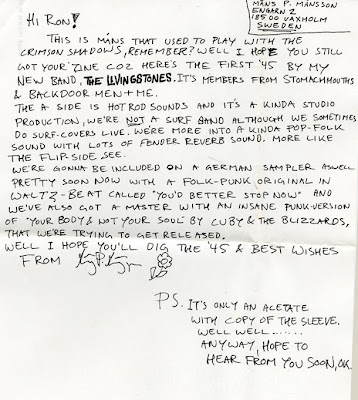 MÅNS P. MÅNSSON
ENGARN 2
185 00 VAXHOLM
SWEDEN
HI RON!
THIS IS MÅNS THAT USED TO PLAY WITH THE
CRIMSON SHADOWS, REMEMBER? WELL I HOPE YOU STILL
GOT YOUR 'ZINE COZ HERE'S THE FIRST '45 BY MY
NEW BAND, THE LIVINGSTONES. IT'S MEMBERS FROM STOMACHMOUTHS
& BACKDOOR MEN + ME.
THE A SIDE IS HOT ROD SOUNDS AND IT'S A KINDA STUDIO
PRODUCTION, WE'RE NOT A SURF BAND ALTHOUGH WE SOMETIMES
DO SURF-COVERS LIVE. WE'RE MORE INTO A KINDA POP-FOLK
SOUND WITH LOTS OF FENDER REVERB SOUND. MORE LIKE
THE FLIP-SIDE, SEE.
WE'RE GONNA BE INCLUDED ON A GERMAN SAMPLER ASWELL
PRETTY SOON NOW WITH A FOLK-PUNK ORIGINAL IN
WALTZ-BEAT CALLED "YOU'D BETTER STOP NOW" AND
WE'VE ALSO GOT A MASTER WITH AN INSANE PUNK-VERSION
OF "YOUR BODY & NOT YOUR SOUL" BY CUBY & THE BLIZZARDS,
THAT WE'RE TRYING TO GET RELEASED.
WELL I HOPE YOU'LL DIG THE '45 & BEST WISHES
FROM
PS. IT'S ONLY AN ACETATE
WITH COPY OF THE SLEEVE.
WELL WELL.......
ANYWAY, HOPE TO
HEAR FROM YOU SOON, OK.